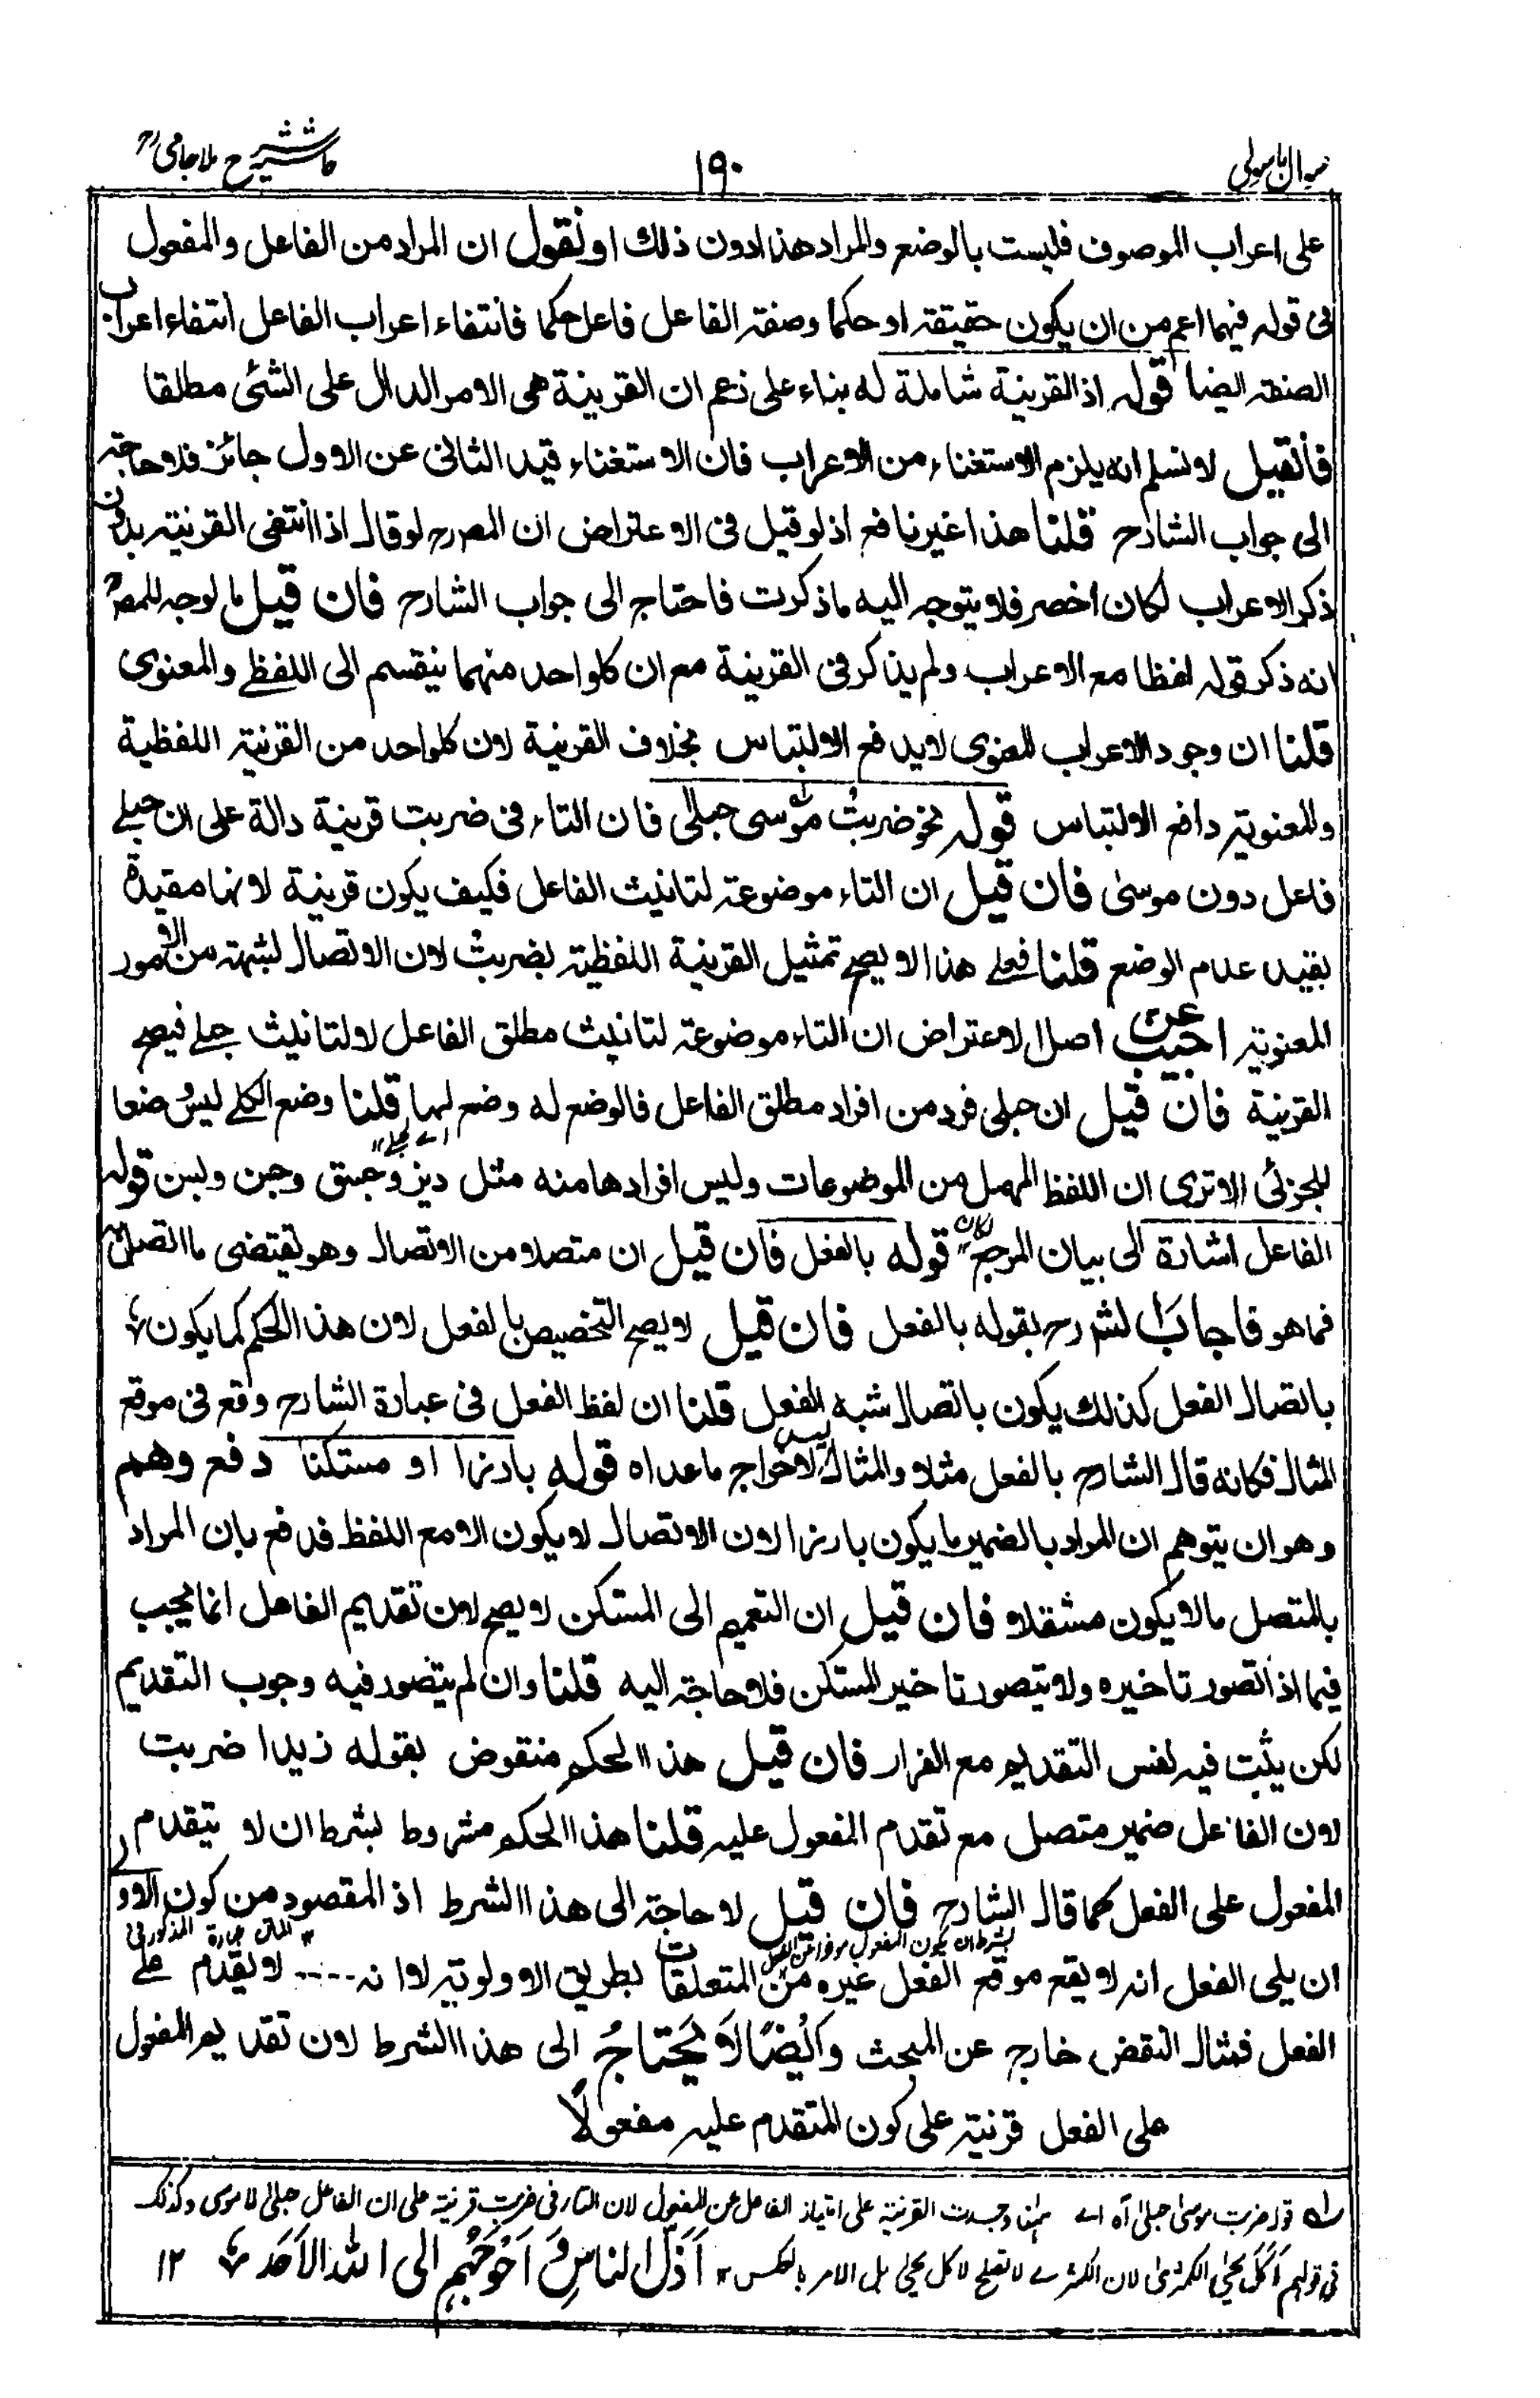 سوال باسولی ١٩٠ حاشیہ شرح ملا جامی رح
علی اعراب الموصوف فلیست بالوضع والمراد هذا دون ذلك او نقول ان المراد من الفاعل والمفعول
فی قولہ فیهما اعم من ان یکون حقیقتہ او حکما وصفتہ الفاعل فاعل حکما فانتفاء اعراب الفاعل انتفاء اعراب
الصفتہ ایضا قولہ اذ القرینة شاملة له بناء علی زعم ان القرینة هی الامر الدال علی الشئ مطلقا
فانقیل لا نسلم انہ یلزم الاستغناء من الاعراب فان الاستغناء قید الثانی عن الاول جائز فلا حاجتہ
الی جواب الشارح قلنا هذا غیر نافع اذ لو قیل فی الاعتراض ان المصرح لو قال اذا انتفی القرینتہ بدون
ذکر الاعراب لکان اخصر فلا یتوجہ الیہ ما ذکرت فاحتاج الی جواب الشارح فان قیل ما لوجہ للمصرح
انہ ذکر قولہ لفظا مع الاعراب ولم یذکر فی القرینة مع ان کلواحد منهما ینقسم الی اللفظے والمعنوی
قلنا ان وجود الاعراب المعنوی لا یدفع الالتباس بخلاف القرینة لان کلواحد من القرینتہ اللفظیة
والمعنویتہ دافع الالتباس قولہ نحو ضربتْ موسی حبلی فان التاء فی ضربت قرینة دالة علی ان حبلے
فاعل دون موسیٰ فان قیل ان التاء موضوعتہ لتانیث الفاعل فکیف یکون قرینة لانها مقیدة
بقید عدم الوضع قلنا فعلے هذا لا یصح تمثیل القرینة اللفظیتہ بضربتْ لان الاتصال لشهتہ من الامور
المعنویتہ اجیب عن اصل الاعتراض ان التاء موضوعتہ لتانیث مطلق الفاعل لا لتانیث حبلے فیصح
القرینة فان قیل ان حبلی فرد من افراد مطلق الفاعل فالوضع له وضع لها قلنا وضع الکلے لیس وضعا
للجزئی الا تری ان اللفظ المهمل من الموضوعات ولیس افرادها منه مثل دیز وجسق وجن وبسن قولہ
الفاعل اشارة الی بیان المرجع لکان قولہ بالفعل فان قیل ان متصلا من الاتصال وهو یقتضی ما اتصل بہ
فما هو فاجاب الشرح بقولہ بالفعل فان قیل لا یصح التخصیص بالفعل لان هذا الحکم کما یکون
باتصال الفعل کذلك یکون باتصال شبہ الفعل قلنا ان لفظ الفعل فی عبارة الشارح وقع فی موقع
المثال فکانہ قال الشارح بالفعل مثلا والمثال لیس لاخراج ما عداہ قولہ بارزا او مستکنا دفع وهم
وهو ان یتوهم ان المراد بالضمیر ما یکون بارزا لان الاتصال لا یکون الا مع اللفظ فدفع بان المراد
بالمتصل ما لا یکون مستقلا فان قیل ان التعمیم الی المستکن لا یصح لان تقدیم الفاعل انما یجب
فیما اذا تصور تاخیره ولا یتصور تاخیر المستکن فلا حاجتہ الیه قلنا وان لم یتصور فیه وجوب التقدیم
لکن یثبت فیہ نفس التقدیم مع الفرار فان قیل هذا الحکم منقوض بقوله زیدا ضربت
لان الفاعل ضمیر متصل مع تقدم المفعول علیہ قلنا هذا الحکم مشروط بشرط ان لا یتقدم
المفعول علی الفعل کما قال الشارح فان قیل لا حاجتہ الی هذا الشرط اذ المقصود من کون الاول
بشرط ان یکون المفعول موخرا عن الفعل المتن عبارة المذکور فی
ان یلی الفعل انہ لا یقع موقع الفعل غیره من المتعلقات بطریق الاولویتہ لا انہ .... لا یقدم علے
الفعل فمثال النقض خارج عن المبحث وایضًا لا یحتاجُ الی هذا الشرط لان تقدیم المفعول
علی الفعل قرنیتہ علی کون المتقدم علیہ مفعولاً
لہ قولہ ضربت موسیٰ حبلیٰ آہ اے ہنا وجدت القرنیتہ علی امتیاز الفاعل عن المفعول لان التاء فی ضربت قرنیة علی ان الفاعل حبلیٰ لا موسی وکذلک
فی قولہم اَکَلَ یحیٰی الکمثریٰ لان الکمثرے لا تصلح لاکل یحیٰی بل الامر بالعکس اَذَلُّ الناسِ وَ اَحْوَجُهُم الی الله الاَحَد ١٢